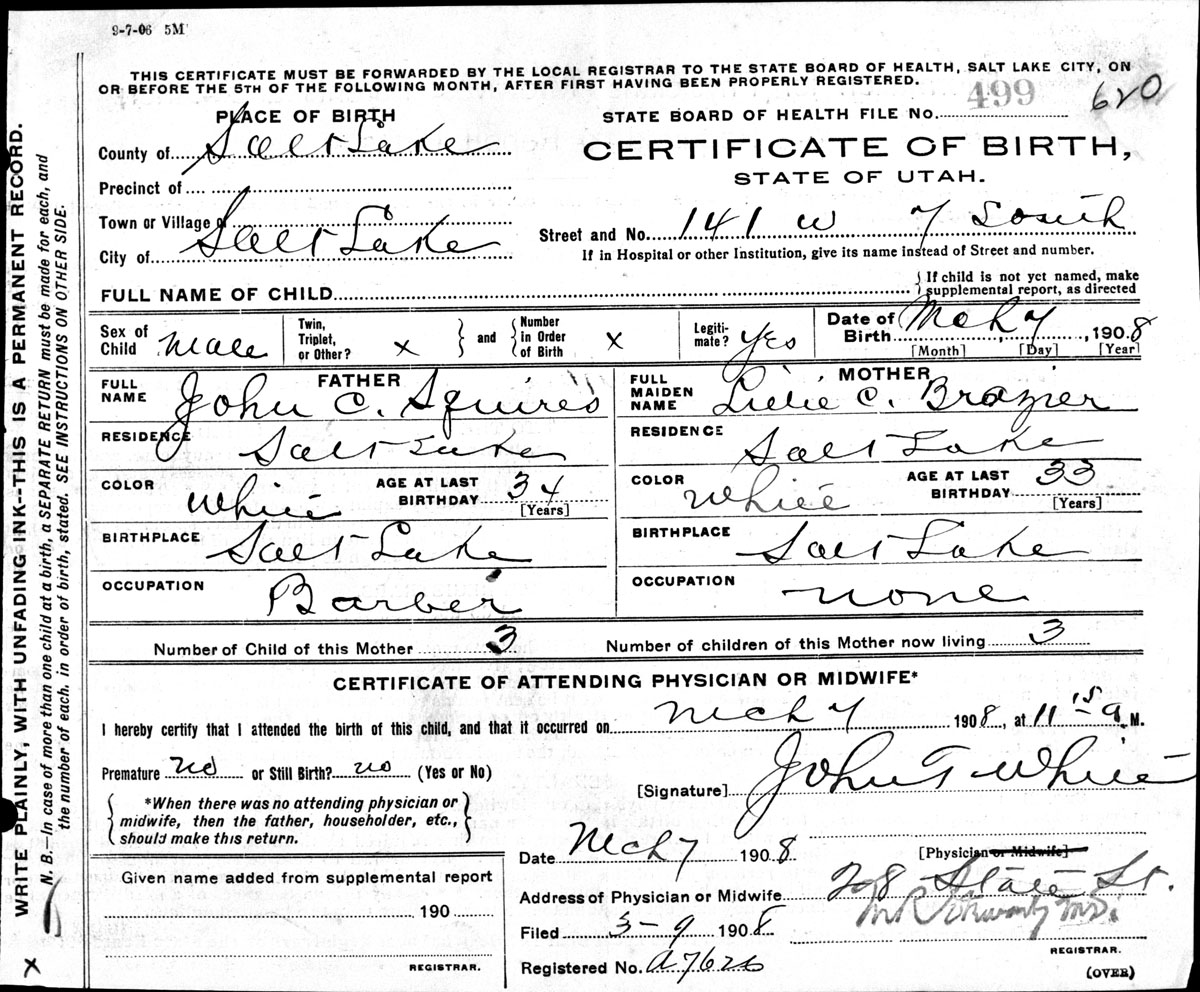 9-7-06 5M
THIS CERTIFICATE MUST BE FORWARDED BY THE LOCAL REGISTRAR TO THE STATE BOARD OF HEALTH, SALT LAKE CITY, ON
OR BEFORE THE 5TH OF THE FOLLOWING MONTH, AFTER FIRST HAVING BEEN PROPERLY REGISTERED.
PLACE OF BIRTH
STATE BOARD OF HEALTH FILE NO. 499 620
County of Salt Lake
CERTIFICATE OF BIRTH,
STATE OF UTAH.
Precinct of
Town or Village of
Street and No. 141 W 7 South
City of Salt Lake
If in Hospital or other Institution, give its name instead of Street and number.
FULL NAME OF CHILD
If child is not yet named, make
supplemental report, as directed
Sex of Child Male
Twin, Triplet, or Other? x
and
Number in Order of Birth x
Legiti-mate? Yes
Date of Birth Mch 7, 1908
[Month] [Day] [Year]
FATHER
FULL NAME John C. Squires
RESIDENCE Salt Lake
COLOR White
AGE AT LAST BIRTHDAY 34
[Years]
BIRTHPLACE Salt Lake
OCCUPATION Barber
MOTHER
FULL MAIDEN NAME Lillie C. Brazier
RESIDENCE Salt Lake
COLOR White
AGE AT LAST BIRTHDAY 33
[Years]
BIRTHPLACE Salt Lake
OCCUPATION none
Number of Child of this Mother 3
Number of children of this Mother now living 3
CERTIFICATE OF ATTENDING PHYSICIAN OR MIDWIFE*
I hereby certify that I attended the birth of this child, and that it occurred on Mch 7 1908, at 11 15 a, M.
Premature no or Still Birth? no (Yes or No)
[Signature] John T White
*When there was no attending physician or
midwife, then the father, householder, etc.,
should make this return.
Date Mch 7 1908
[Physician or Midwife]
Address of Physician or Midwife 208 State St.
Given name added from supplemental report
190
REGISTRAR.
Filed 3-9 1908
M.D.
REGISTRAR.
Registered No.
(OVER)
WRITE PLAINLY, WITH UNFADING INK--THIS IS A PERMANENT RECORD.
N. B.--In case of more than one child at a birth, a SEPARATE RETURN must be made for each, and
the number of each, in order of birth, stated. SEE INSTRUCTIONS ON OTHER SIDE.
x